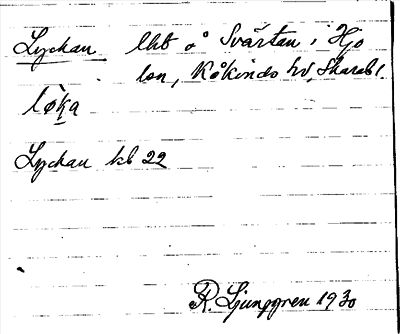 Lyckan lht å Svärtan i Hjo
lsn, Kåkinds hd, Skarabl.
lø̀ḵa
Lyckan kb 22
R. Ljunggren 1930